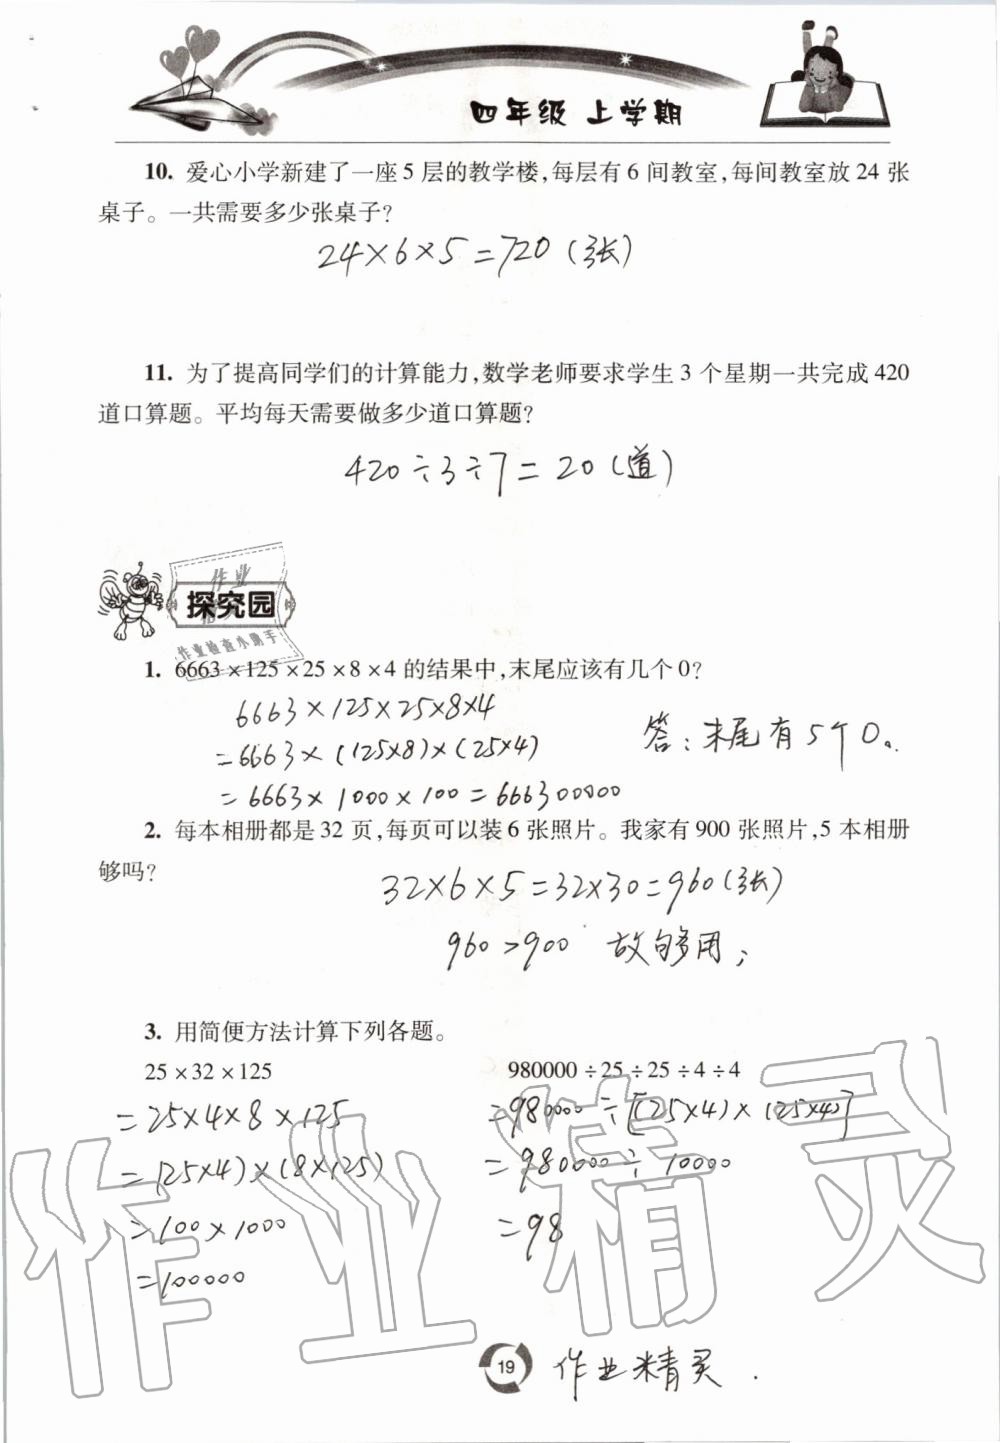 四年级 上学期
10. 爱心小学新建了一座5层的教学楼,每层有6间教室,每间教室放24张
桌子。一共需要多少张桌子?
24×6×5=720(张)
11. 为了提高同学们的计算能力,数学老师要求学生3个星期一共完成420
道口算题。平均每天需要做多少道口算题?
420÷3÷7=20(道)
作业
探究园
作业检查小助手
1. 6663×125×25×8×4的结果中,末尾应该有几个0?
6663×125×25×8×4
=6663×(125×8)×(25×4)
=6663×1000×100=666300000
答:末尾有5个0。
2. 每本相册都是32页,每页可以装6张照片。我家有900张照片,5本相册
够吗?
32×6×5=32×30=960(张)
960>900 故够用;
3. 用简便方法计算下列各题。
25×32×125
=25×4×8×125
=(25×4)×(8×125)
=100×1000
=100000
980000÷25÷25÷4÷4
=980000÷[(25×4)×(25×4)]
=980000÷10000
=98
作业精灵
19
作业精灵.